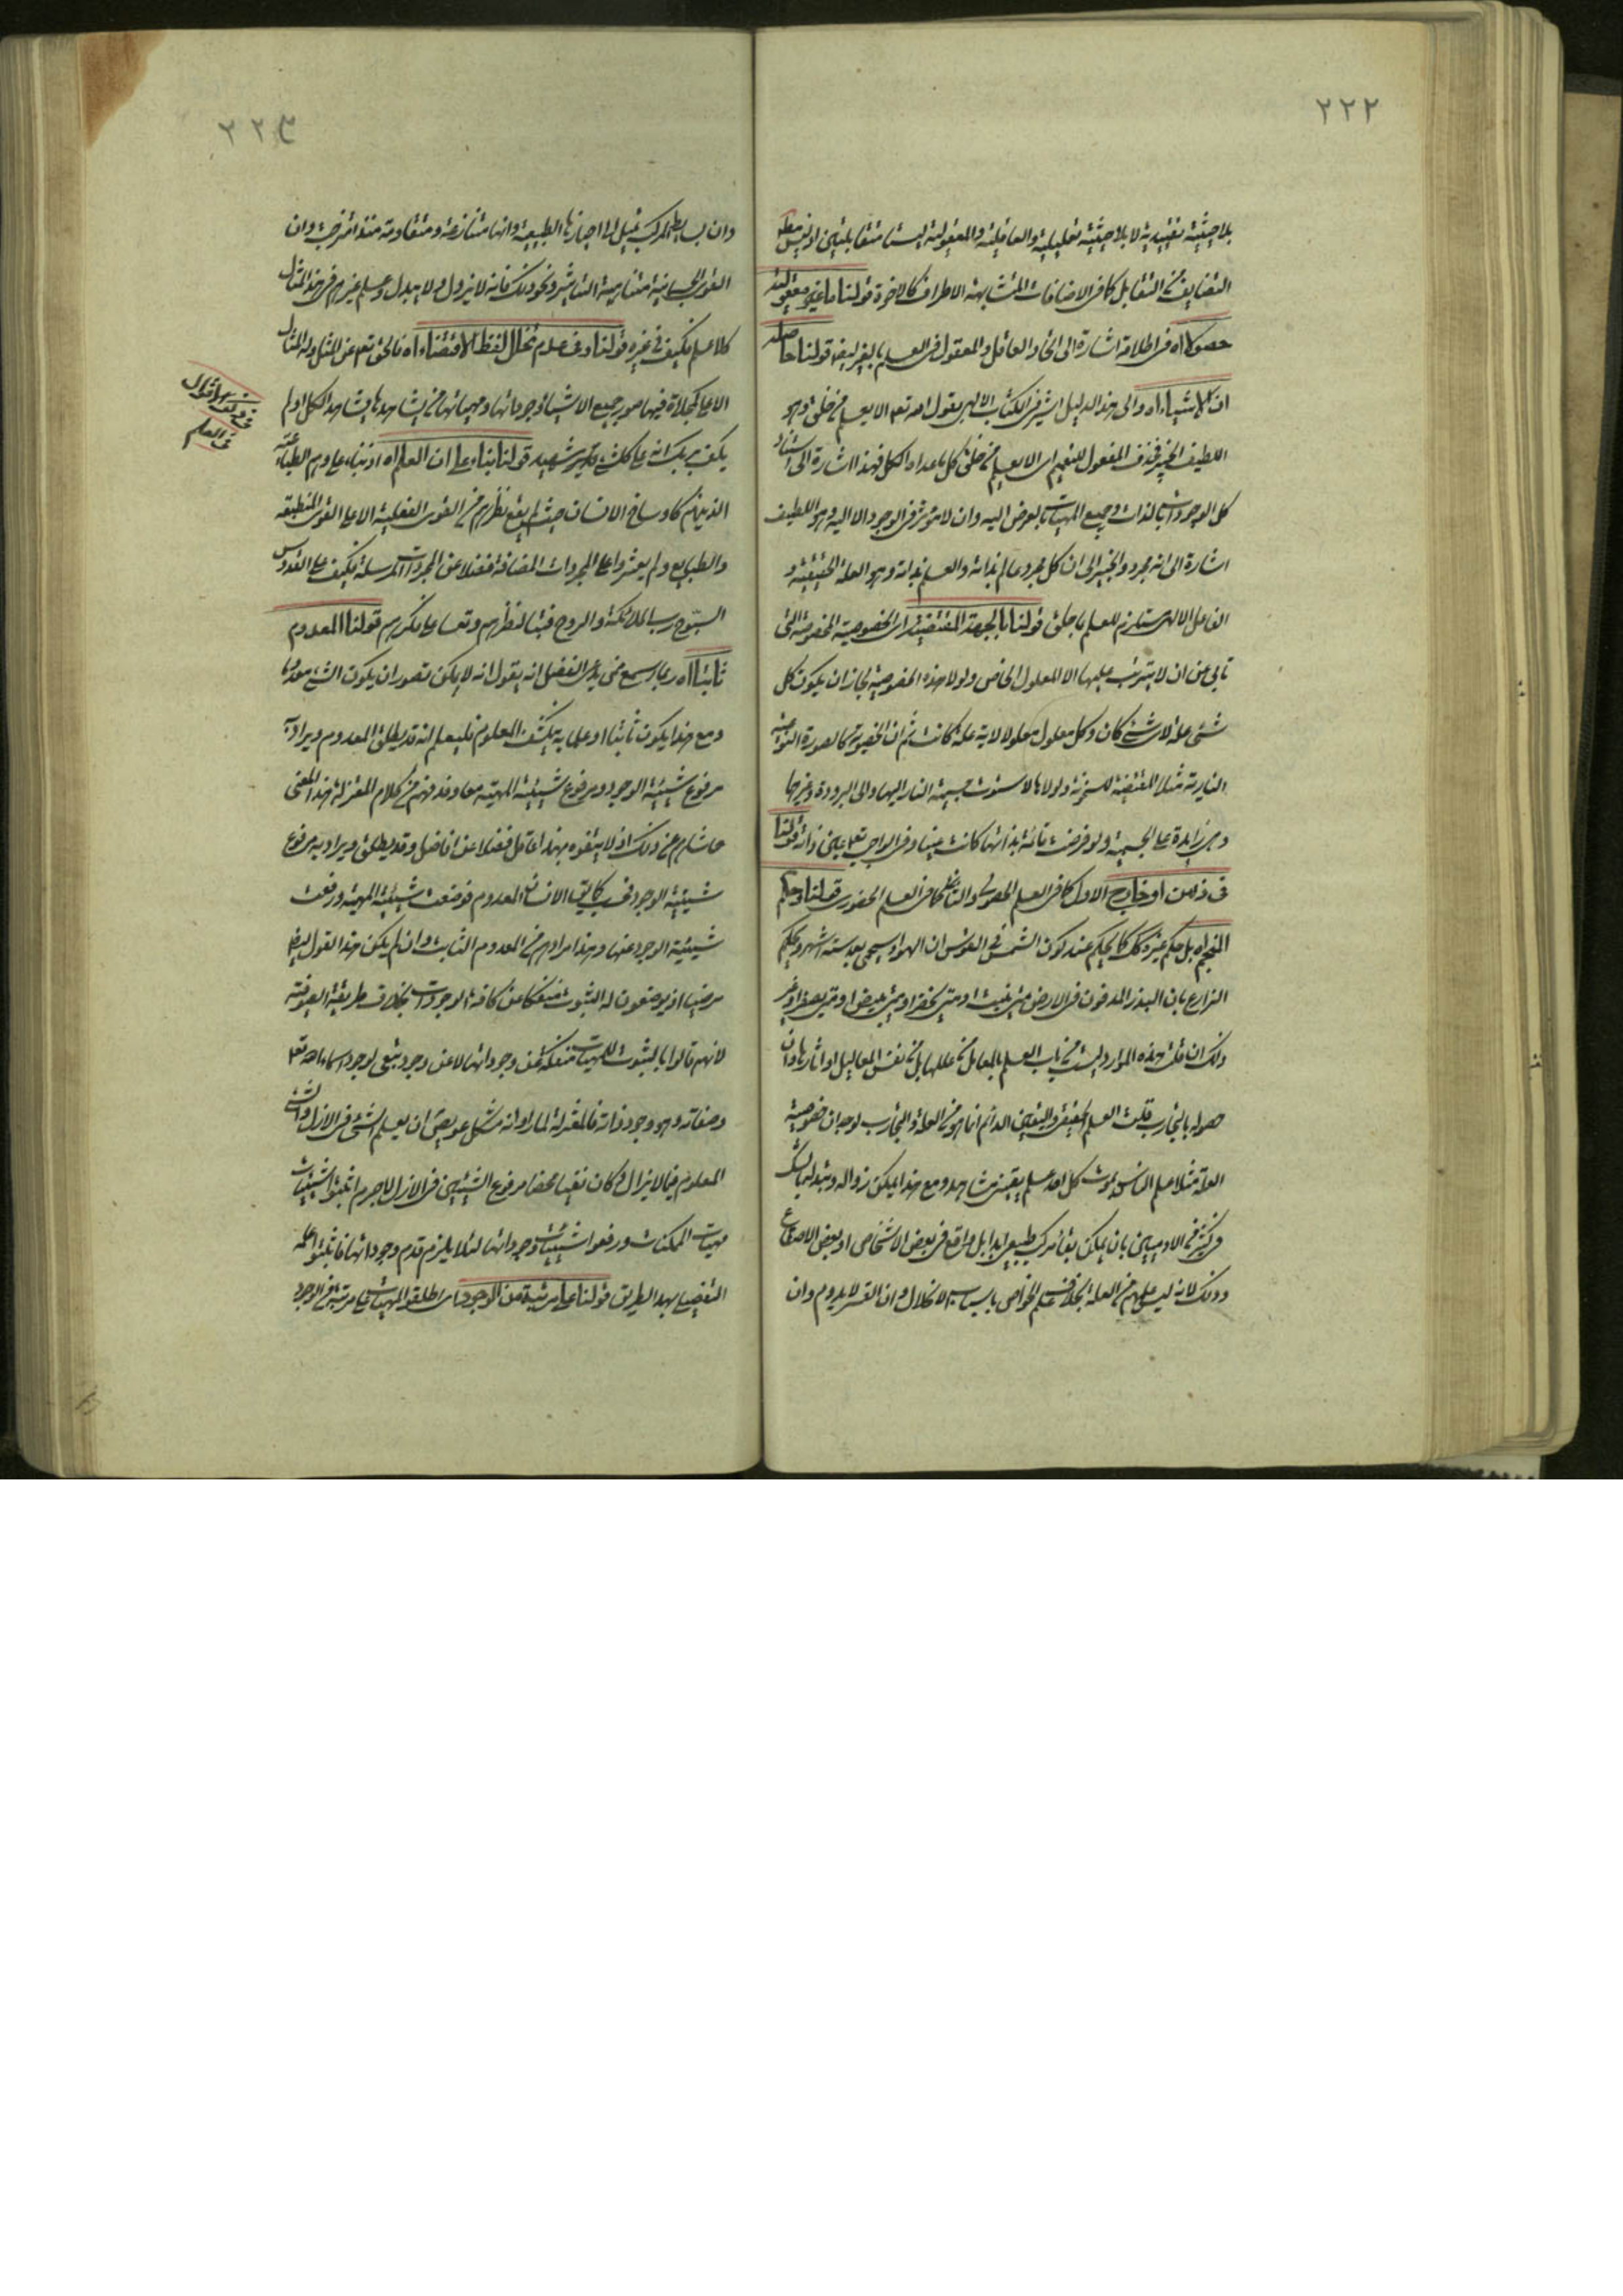 ٢٢٢
بلا حيثية تقييدية لا بلا حيثية تعليلية والعاقلية والمعقولية ليستا متقابلتين اذ ليس مطلق
التضايف من التقابل كما فى الاضافات المتشابهة الاطراف كالاخوة قولنا ما غيره معقولية
حصوله اه فى اطلاقه اشارة الى اتحاد العاقل والمعقول فى العلم بالغير ايضا قولنا حاصلة
اذ الاشياء اه والى هذا الدليل اشير فى الكتاب الالهى بقول الله تعم الا يعلم من خلق وهو
اللطيف الخبير فحذف المفعول للتعميم اى الا يعلم من خلق كل ما عداه الكل فهذا اشارة الى استناد
كل الوجودات بالذات وجميع المهيات بالعرض اليه وان لا مؤثر فى الوجود الا اليه وهو اللطيف
اشارة الى انه مجرد والخبير الى ان كل مجرد عالم بذاته والعلم بذاته وهو العلة الحقيقية و
الفاعل الالهى يستلزم للعلم بما خلق قولنا بالجهة المقتضية اى الخصوصية المخصوصة التى
تابى عن ان لا يترتب عليها الا المعلول الخاص ولولا هذه الخصوصية لجاز ان يكون كل
شئ علة لاى شئ كان وكل معلول معلولا لاية علة كانت ثم ان الخصوصية كالصورة النوعية
النارية مثلا المقتضية للسخونة ولولاها لاستوت جسمية النار اليها والى البرودة وغيرها
وهى زايدة على الجسمية ولو فرضت قائمة بذاتها كانت عينها وفى الواجب تعم عين ذاته قولنا
فى ذهن او خارج الاول كما فى العلم الحصولى والثانى كما فى العلم الحضورى قولنا وحكم
المنجم اه بل حكم غيره كذلك كما يحكم عند كون الشمس فى القوس ان الهواء يسخن بعد ستة اشهر ويحكم
الزارع بان البذر المدفون فى الارض متى ينبت او متى يخضر او متى يبيض او متى يصفر او غير
ذلك ان قلت هذه الموارد ليست من باب العلم بالمعاليل من عللها بل من نفس المعاليل او اثارها وان
حصوله بالتجارب قلت العلم الحقيقى واليقين الدائم انما هو من العلة والتجارب لوجدان خصوصية
العلة مثلا علم الناس بموت كل احد علم يقينى مشاهد ومع هذا يمكن زواله وتبدله بالشك
فى كثير من الادميين بان يمكن بقاء مركب طبيعى ابدا بل هو واقع فى بعض الاشخاص او بعض الاصقاع
وذلك لانه ليس علمهم من العلة بخلاف علم الخواص باسباب الانحلال وان القسر لا يدوم وان
٢٢٣
وان بسايط المركب تميل الى احيازها الطبيعية وانها متنازعة ومتقاومة منذ امتزجت وان
القوى الجسمانية متناهية التاثير ونحو ذلك فانه لا يزول ولا يبدل وعلم غيرهم فى هذا المثال
كلا علم فكيف فى غيره قولنا وفى عدم تخلل لفظ الاقتضاء اه فالحق تعم عن المثل وله المثال
الاعلى كمجلاة فيها صور جميع الاشياء وجوداتها ومهياتها من يشاهدها يشاهد الكل اولم
يكف بربك انه على كل شئ شهيد قولنا بناء على ان العلم اه اذ بناء على وهم الطباعية
الذين هم كاوساخ الانسان حيث لم يقع نظرهم من القوى الفعلية الا على القوى المنطبعة
والطبايع ولم يعثروا على المجردات المضافة فضلا عن المجردات المرسلة فكيف على القدوس
السبوح رب الملائكة والروح فتبا لنظرهم وتعسا على فكرهم قولنا المعدوم
ثابتا اه ربما يسمع من يدعى الفضل انه يقول انه لا يمكن تصور ان يكون الشئ معدوما
ومع هذا يكون ثابتا او علما به ينكشف المعلوم فليعلم انه قد يطلق المعدوم ويراد به
مرفوع شيئية الوجود ومرفوع شيئية المهية معا وقد فهم من كلام المعتزلة هذا المعنى
حاشاهم عن ذلك اذ لا يتفوه بهذا عاقل فضلا عن فاضل وقد يطلق ويراد به مرفوع
شيئية الوجود فحسب كما يق الانسان المعدوم فوضعت شيئية المهية ورفعت
شيئية الوجود عنها وهذا مرادهم من المعدوم الثابت وان لم يكن هذا القول ايضا
مرضيا اذ يوضعون له الثبوت منفكا عن كافة الوجودات بخلاف طريقة الصوفية
لانهم قالوا بالثبوت للمهيات منفكة عن وجوداتها لا عن وجود تبعى لوجود اسماء الله تعم
وصفاته وهو وجود ذاته فالمعتزلة لما راوا انه مشكل عويص ان يعلم الشئ فى الازل والشئ
المعلوم فيما لا يزال وكان نفيا محضا مرفوع الشيئيتين فى الازل لاجرم اثبتوا شيئيات
مهيات الممكنات ورفعوا شيئيات وجوداتها لئلا يلزم قدم وجوداتها فاثبتوا علمه
التفصيلى بهذا الطريق قولنا على مرتبة من الوجود اى اطلقوا المهيات على مرتبة من الوجود
فى ذكر الاقوال
فى العلم